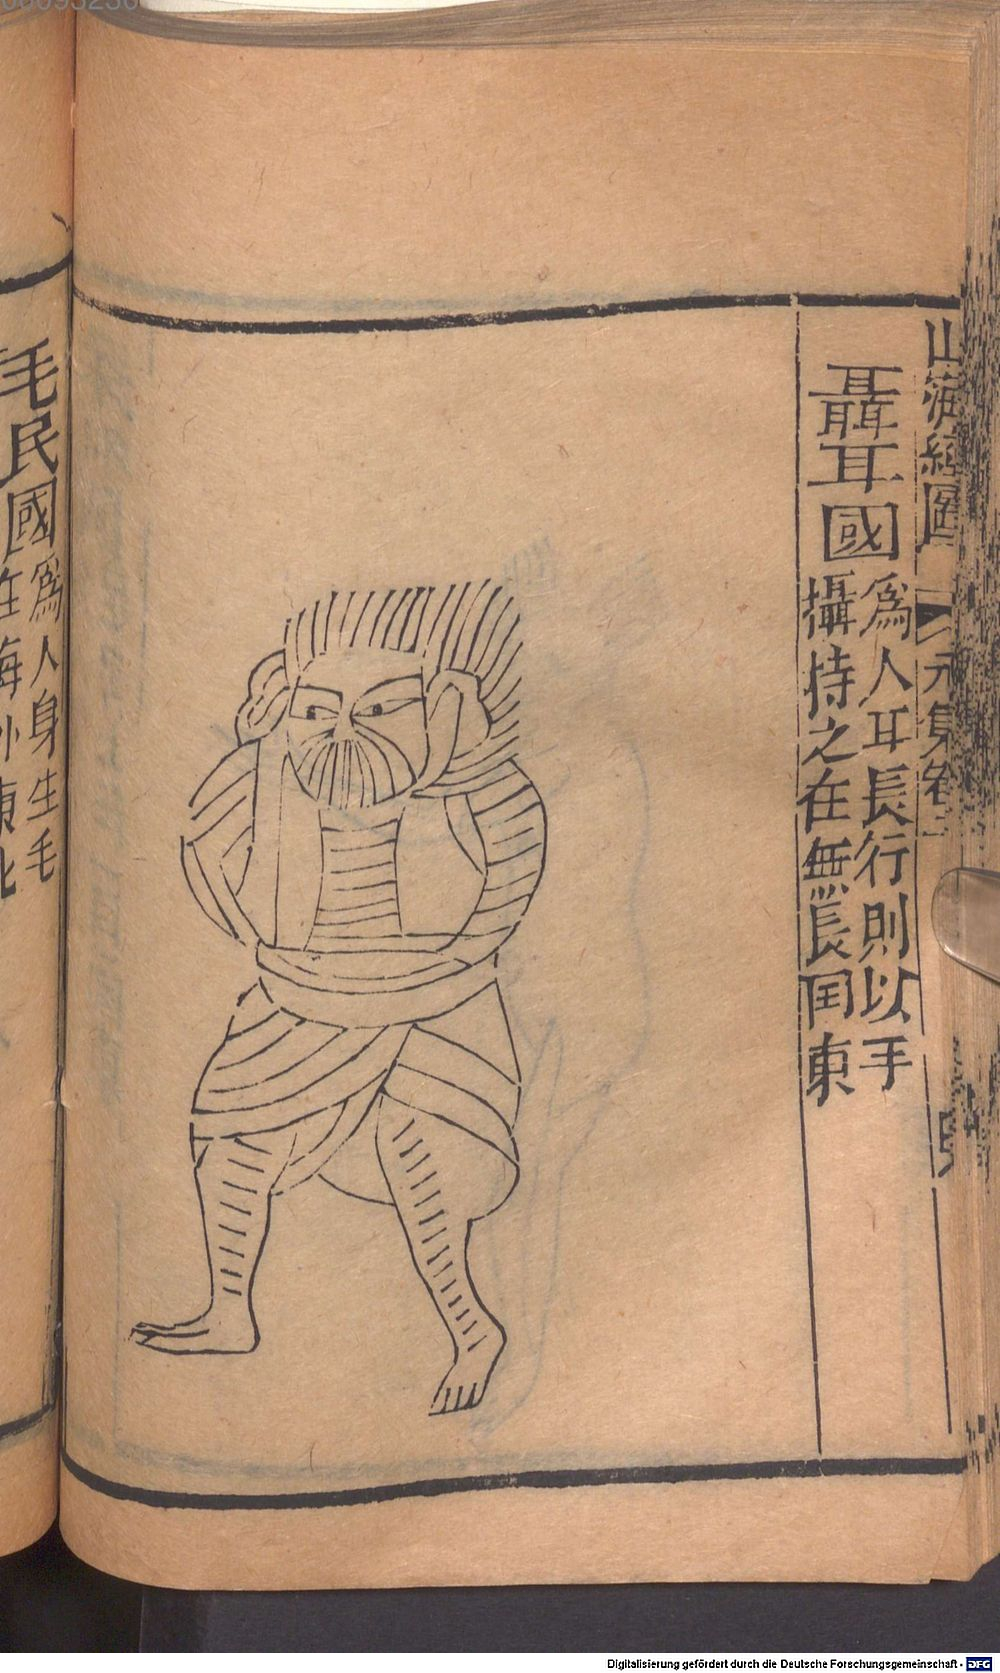 山海經圖
聶耳國
為人耳長行則以手
攝持之在無長囯東
毛民國
為人身生毛
在海外東北
Digitalisierung gefördert durch die Deutsche Forschungsgemeinschaft - DFG